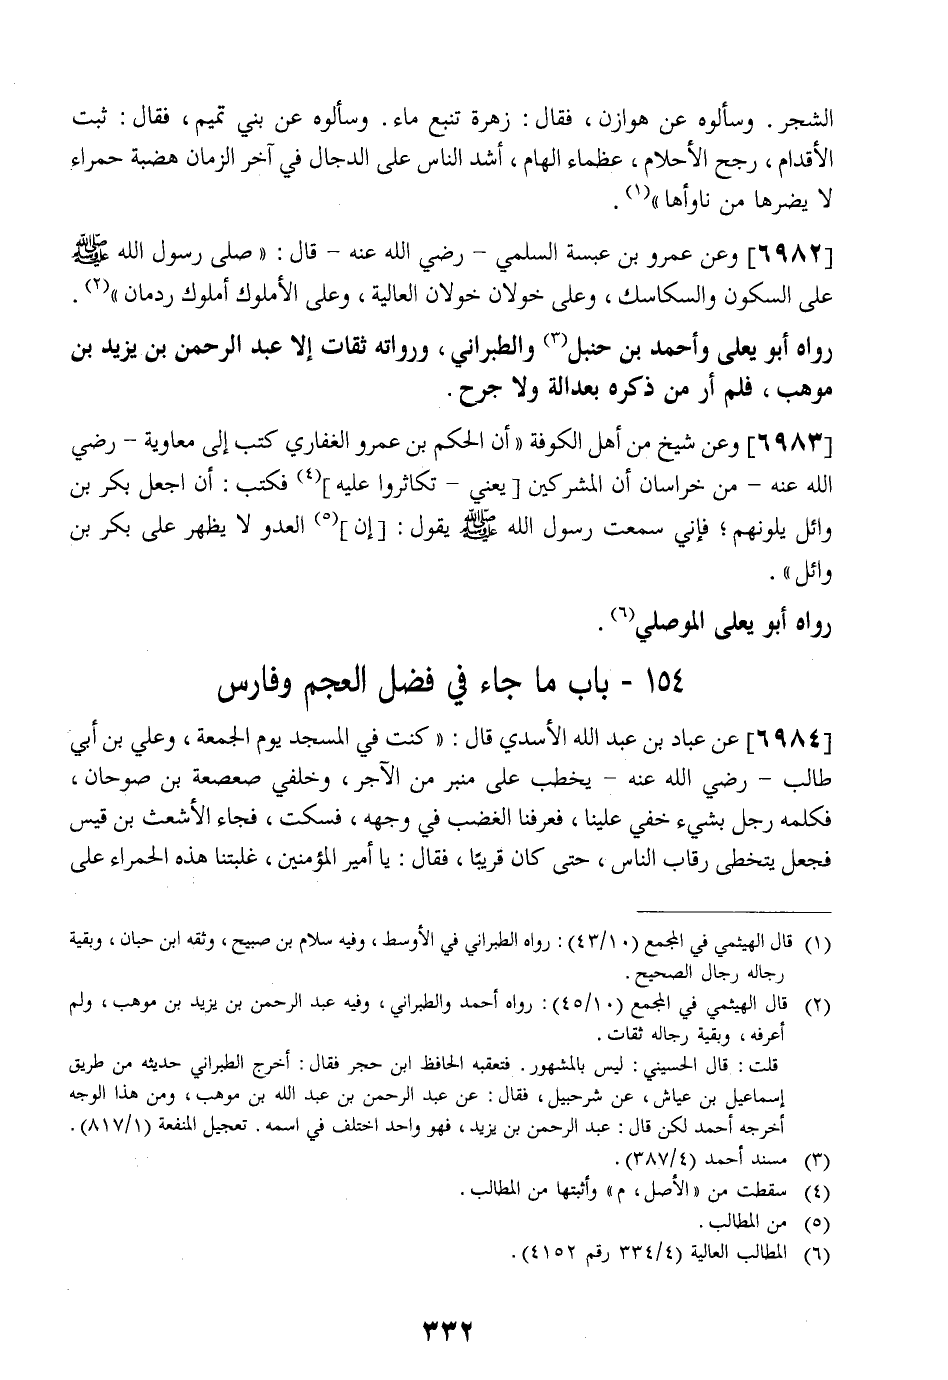 الشجر . وسألوه عن هوازن ، فقال : زهرة تنبع ماء . وسألوه عن بني تميم ، فقال : ثبت
الأقدام ، رجح الأحلام ، عظماء الهام ، أشد الناس على الدجال في آخر الزمان هضبة حمراء
لا يضرها من ناوأها »(١) .
[٦٩٨٢] وعن عمرو بن عبسة السلمي – رضي الله عنه – قال : « صلى رسول الله ﷺ
على السكون والسكاسك ، وعلى خولان خولان العالية ، وعلى الأملوك أملوك ردمان »(٢) .
رواه أبو يعلى وأحمد بن حنبل(٣) والطبراني ، ورواته ثقات إلا عبد الرحمن بن يزيد بن
موهب ، فلم أر من ذكره بعدالة ولا جرح .
[٦٩٨٣] وعن شيخ من أهل الكوفة « أن الحكم بن عمرو الغفاري كتب إلى معاوية – رضي
الله عنه – من خراسان أن المشركين [ يعني – تكاثروا عليه ](٤) فكتب : أن اجعل بكر بن
وائل يلونهم ؛ فإني سمعت رسول الله ﷺ يقول : [ إن ](٥) العدو لا يظهر على بكر بن
وائل » .
رواه أبو يعلى الموصلي(٦) .
١٥٤ - باب ما جاء في فضل العجم وفارس
[٦٩٨٤] عن عباد بن عبد الله الأسدي قال : « كنت في المسجد يوم الجمعة ، وعلي بن أبي
طالب – رضي الله عنه – يخطب على منبر من الآجر ، وخلفي صعصعة بن صوحان ،
فكلمه رجل بشيء خفي علينا ، فعرفنا الغضب في وجهه ، فسكت ، فجاء الأشعث بن قيس
فجعل يتخطى رقاب الناس ، حتى كان قريبًا ، فقال : يا أمير المؤمنين ، غلبتنا هذه الحمراء على
(١) قال الهيثمي في المجمع (٤٣/١٠) : رواه الطبراني في الأوسط ، وفيه سلام بن صبيح ، وثقه ابن حبان ، وبقية
رجاله رجال الصحيح .
(٢) قال الهيثمي في المجمع (٤٥/١٠) : رواه أحمد والطبراني ، وفيه عبد الرحمن بن يزيد بن موهب ، ولم
أعرفه ، وبقية رجاله ثقات .
قلت : قال الحسيني : ليس بالمشهور . فتعقبه الحافظ ابن حجر فقال : أخرج الطبراني حديثه من طريق
إسماعيل بن عياش ، عن شرحبيل ، فقال : عن عبد الرحمن بن عبد الله بن موهب ، ومن هذا الوجه
أخرجه أحمد لكن قال : عبد الرحمن بن يزيد ، فهو واحد اختلف في اسمه . تعجيل المنفعة (٨١٧/١) .
(٣) مسند أحمد (٣٨٧/٤) .
(٤) سقطت من « الأصل ، م » وأثبتها من المطالب .
(٥) من المطالب .
(٦) المطالب العالية (٣٣٤/٤ رقم ٤١٥٢) .
٣٣٢